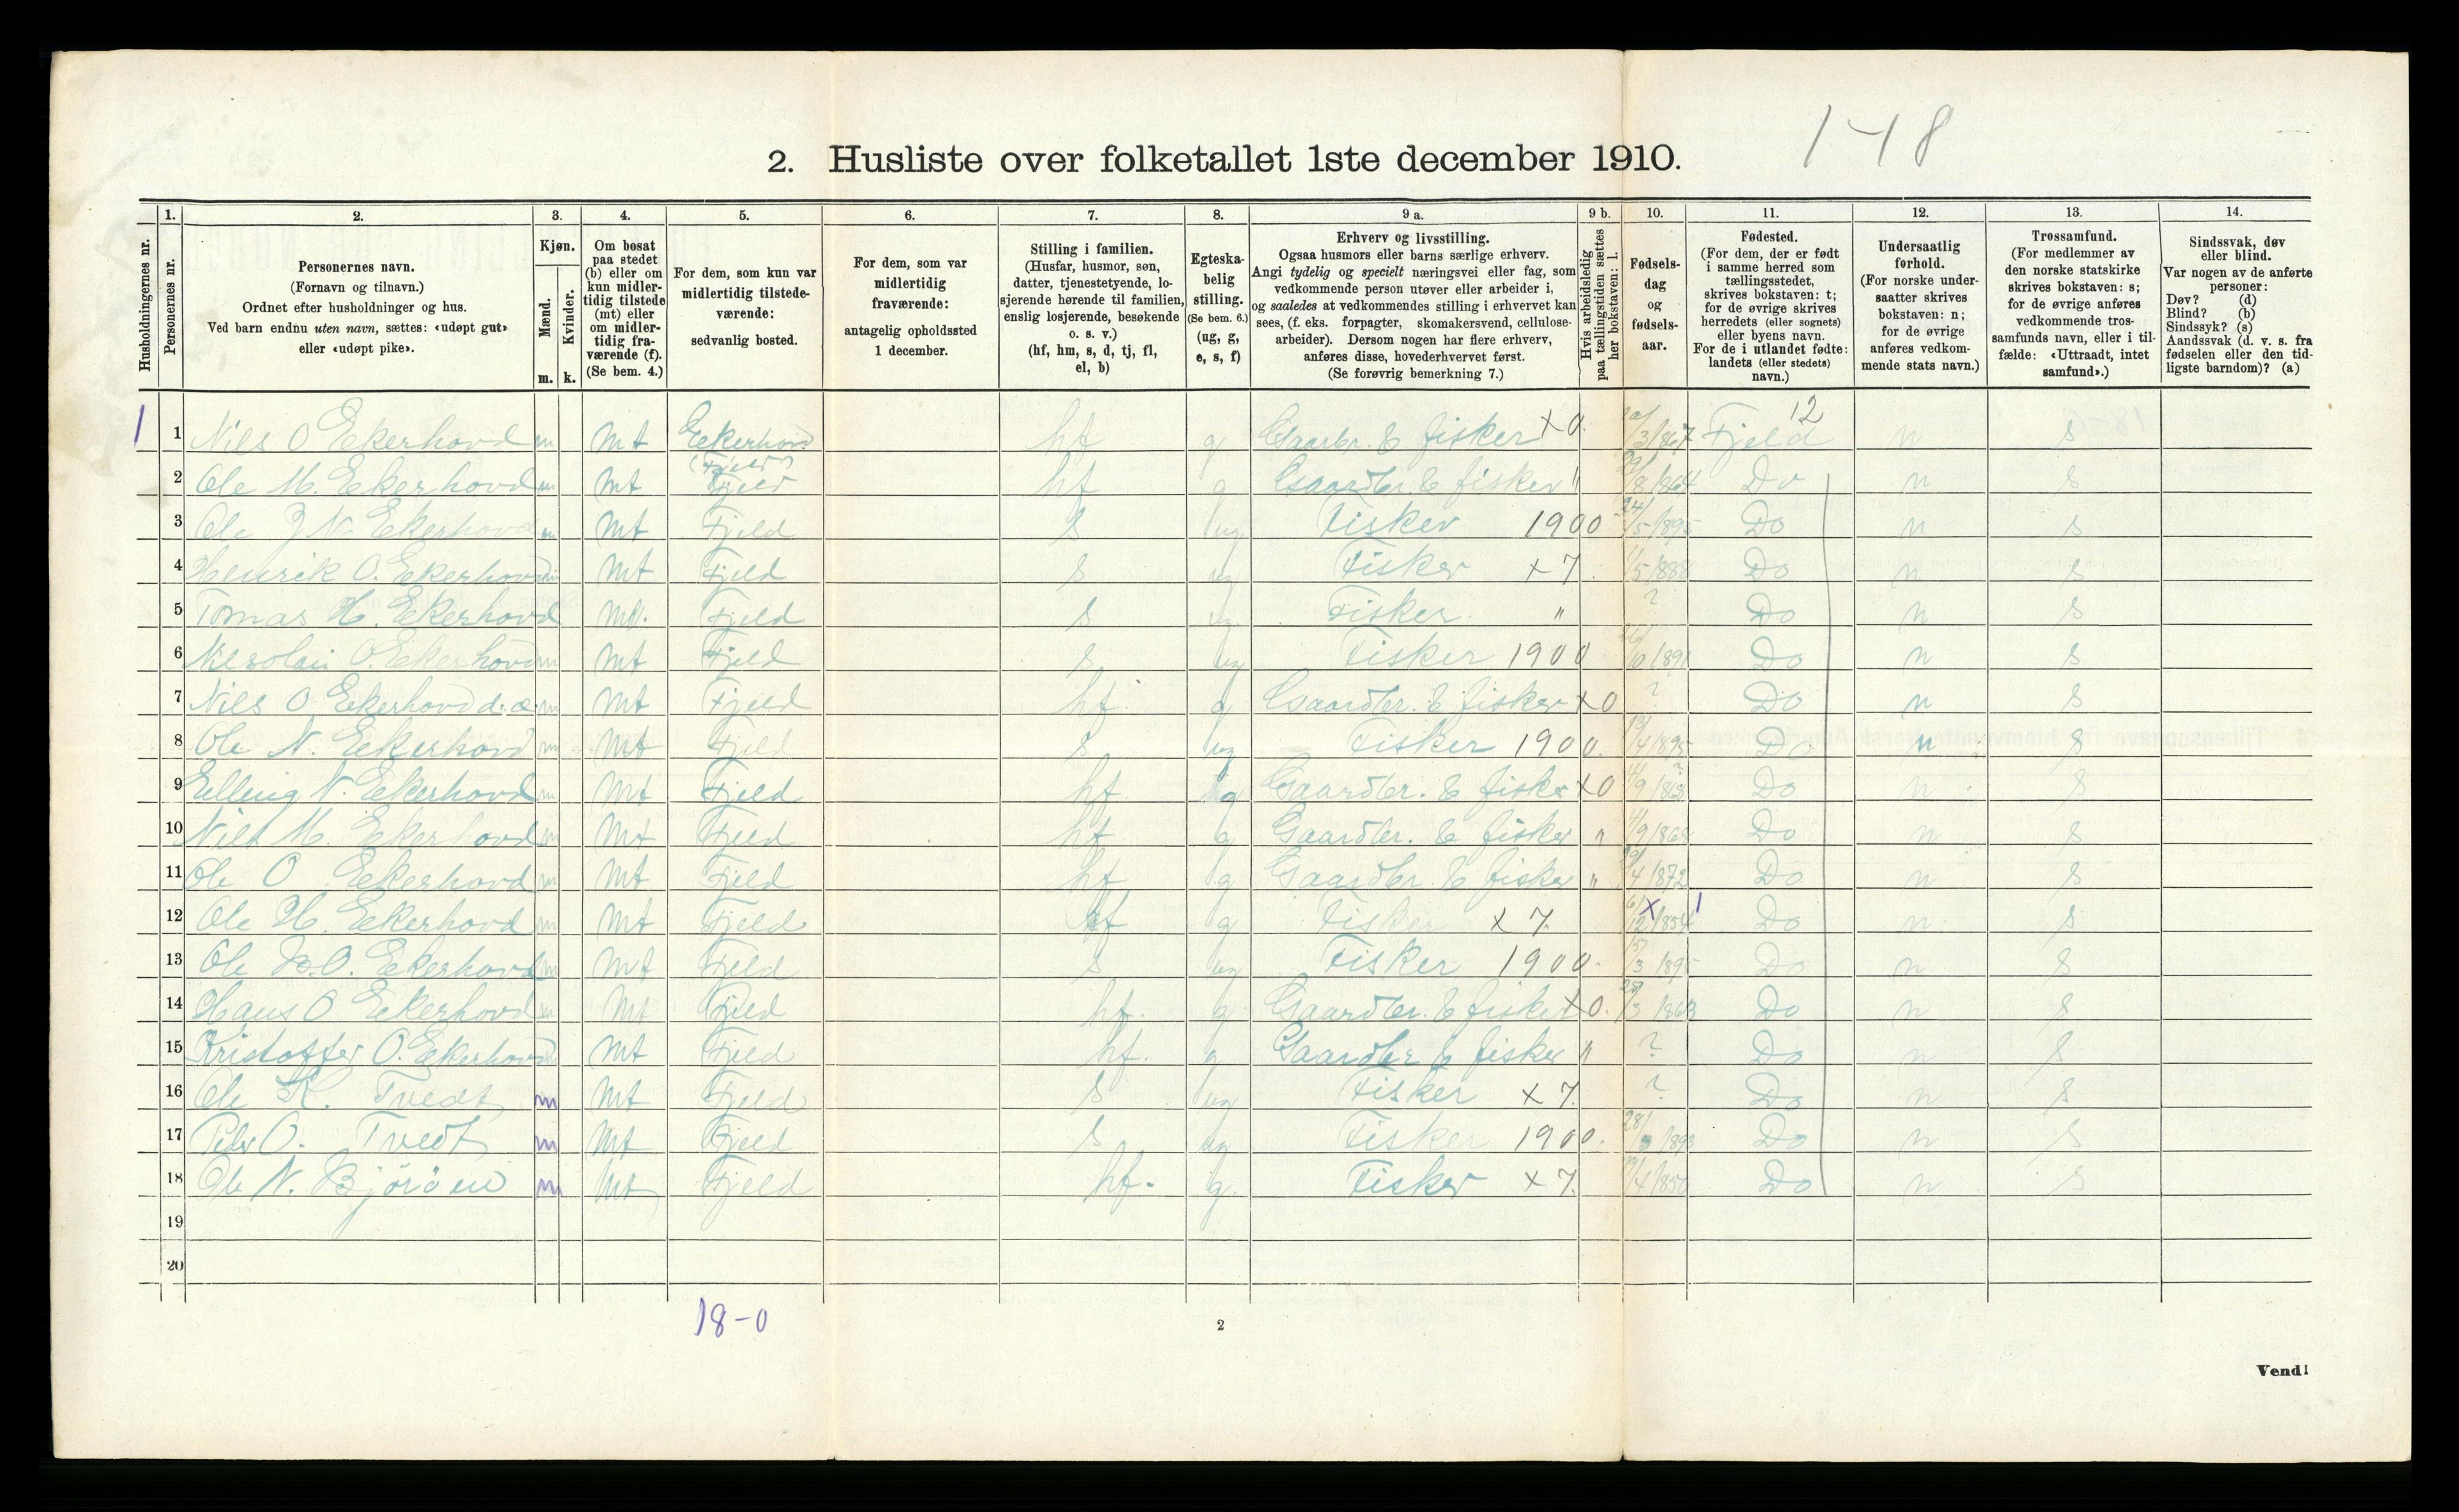 148
2. Husliste over folketallet 1ste december 1910.
Husholdningernes nr.
1. Personernes nr.
2. Personernes navn. (Fornavn og tilnavn.) Ordnet efter husholdninger og hus. Ved barn endnu uten navn, sættes: «udøpt gut» eller «udøpt pike».
3. Kjøn. Mænd. m. Kvinder. k.
4. Om bosat paa stedet (b) eller om kun midlertidig tilstede (mt) eller om midlertidig fraværende (f). (Se bem. 4.)
5. For dem, som kun var midlertidig tilstedeværende: sedvanlig bosted.
6. For dem, som var midlertidig fraværende: antagelig opholdssted 1 december.
7. Stilling i familien. (Husfar, husmor, søn, datter, tjenestetyende, losjerende hørende til familien, enslig losjerende, besøkende o. s. v.) (hf, hm, s, d, tj, fl, el, b)
8. Egteskabelig stilling. (Se bem. 6.) (ug, g, e, s, f)
9 a. Erhverv og livsstilling. Ogsaa husmors eller barns særlige erhverv. Angi tydelig og specielt næringsvei eller fag, som vedkommende person utøver eller arbeider i, og saaledes at vedkommendes stilling i erhvervet kan sees, (f. eks. forpagter, skomakersvend, cellulosearbeider). Dersom nogen har flere erhverv, anføres disse, hovederhvervet først. (Se forøvrig bemerkning 7.)
9 b. Hvis arbeidsledig paa tællingstiden sættes her bokstaven: l.
10. Fødselsdag og fødselsaar.
11. Fødested. (For dem, der er født i samme herred som tællingsstedet, skrives bokstaven: t; for de øvrige skrives herredets (eller sognets) eller byens navn. For de i utlandet fødte: landets (eller stedets) navn.)
12. Undersaatlig forhold. (For norske undersaatter skrives bokstaven: n; for de øvrige anføres vedkommende stats navn.)
13. Trossamfund. (For medlemmer av den norske statskirke skrives bokstaven: s; for de øvrige anføres vedkommende trossamfunds navn, eller i tilfælde: «Uttraadt, intet samfund».)
14. Sindssvak, døv eller blind. Var nogen av de anførte personer: Døv? (d) Blind? (b) Sindssyk? (s) Aandssvak (d. v. s. fra fødselen eller den tidligste barndom)? (a)
1 1 Nils O Ekerhovd m mt Ekerhovd (Fjeld) hf g Gaarbr. & fisker x 0. /3/867 Fjeld 12 n s
2 Ole M. Ekerhovd m mt Fjeld hf g Gaardbr. & fisker " 29/8/864 Do n s
3 Ole N. Ekerhovd m mt Fjeld s ug Fisker 1900 24/5/895 Do n s
4 Henrik O. Ekerhovd m mt Fjeld s ug Fisker x 7. 11/5/888 Do n s
5 Tomas H. Ekerhovd mt. Fjeld s ug Fisker " ? Do n s
6 Nikolai O. Ekerhovd m mt Fjeld s ug Fisker 1900 /10/891 Do n s
7 Nils O Ekerhovd d.æ. m mt Fjeld hf. g Gaardbr. & fisker x 0 ? Do n s
8 Ole N. Ekerhovd m mt Fjeld s ug Fisker 1900. 13/4/895 Do n s
9 Elling N. Ekerhovd m mt Fjeld hf. g Gaardbr. & fisker x 0 /9/863 Do n s
10 Nils M. Ekerhovd m mt Fjeld hf g Gaardbr. & fisker " /9/868 Do n s
11 Ole O Ekerhovd m mt Fjeld hf g Gaardbr. & fisker " /4/872 Do n s
12 Ole H. Ekerhovd m mt Fjeld hf g Fisker x 7. 6/12/854 x 1 Do n s
13 Ole O. Ekerhovd m mt Fjeld s ug Fisker 1900. 15/3 1895 Do n s
14 Hans O Ekerhovd m mt Fjeld hf. g Gaardbr. & fisker x 0. 28/3 1863 Do n s
15 Kristoffer O. Ekerhovd mt Fjeld hf. g Gaardbr & fisker " ? Do n s
16 Ole K. Tvedt m mt Fjeld s ug Fisker x 7. ? Do n s
17 Peder O. Tvedt m mt Fjeld s ug Fisker 1900. 28/ /893 Do n s
18 Ole N. Björöen m mt Fjeld hf. g. Fisker x 7. /4/850 Do n s
19
20
18-0
2
Vend!